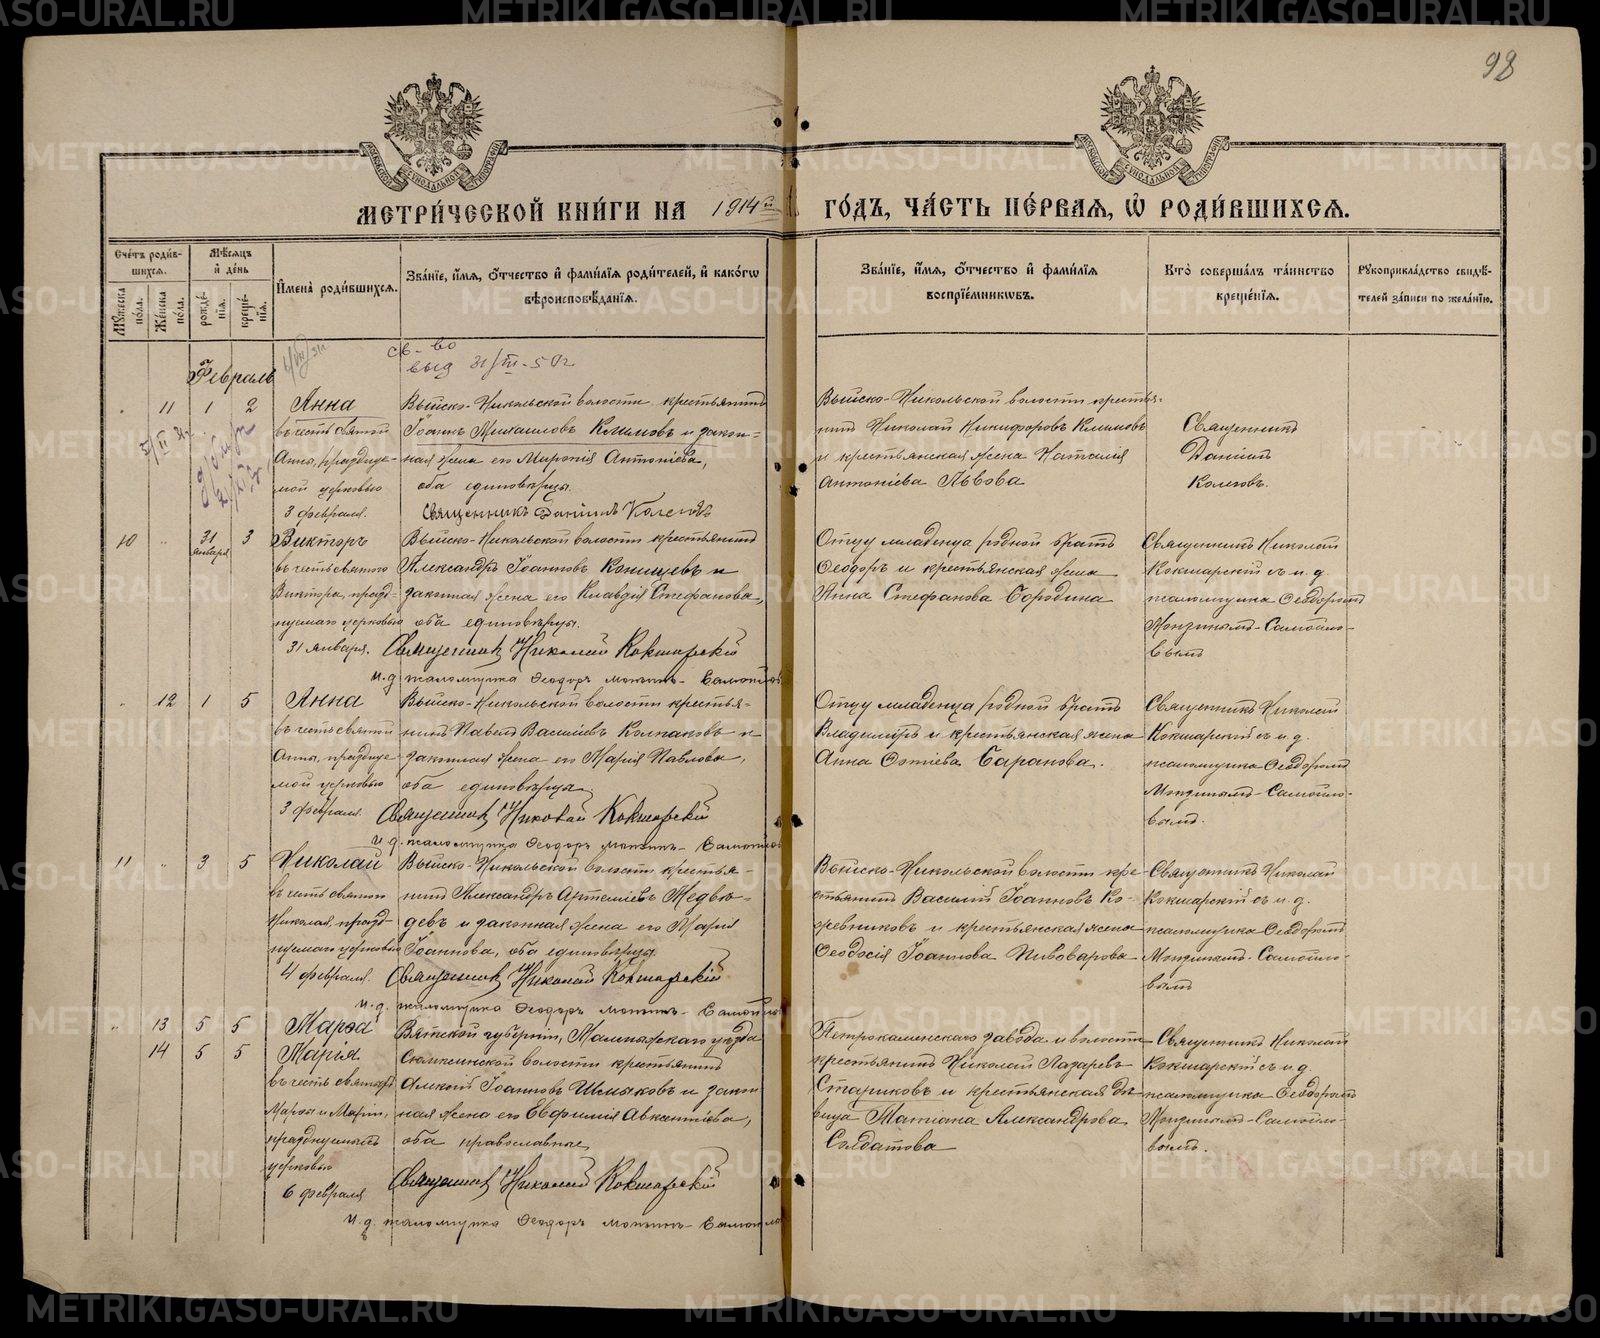 98
МЕТРИ́ЧЕСКОЙ КНИ́ГИ НА 1914й ГО́ДЪ, ЧА́СТЬ ПЕ́РВАЯ, Ѡ РОДИ́ВШИХСЯ.
Сче́тъ роди́в-
шихся.
Му́жеска по́ла.
Же́нска по́ла.
Мѣ́сяцъ
и де́нь
рожде́нїя.
креще́нїя.
Имена̀ роди́вшихся.
Зва́нїе, и́мя, ѻ́тчество и фами́лїя роди́телей, и како́гѡ
вѣроисповѣ́данїя.
Зва́нїе, и́мя, ѻ́тчество и фами́лїя
воспрїе́мникѡвъ.
Кто̀ соверша́лъ та́инство
креще́нїя.
Рукоприкла́дство свидѣ́-
телей за́писи по жела́нїю.
Февраль
св-во
выд 31/III-50г
11 1 2
Анна
въ честь святой
Анны, праздуе-
мой церковью
3 февраля.
Выйско-Никольской волости крестьянинъ
Іоаннъ Михаиловъ Климовъ и закон-
ная жена его Миропія Антоніева,
оба единовѣрцы.
Священникъ Даніилъ Колеговъ
Выйско-Никольской волости кресть-
нинъ Николай Никифоровъ Климовъ
и крестьянская жена Наталія
Антоніева Львова
Священникъ
Даніилъ
Колеговъ.
10 " 31 января 3
Викторъ
въ честь святого
Виктора, празд-
нуемаго церковью
31 января.
Выйско-Никольской волости крестьянинъ
Александръ Іоанновъ Конищевъ и
законная жена его Клавдія Стефанова,
оба единовѣрцы.
Священникъ Николай Кокшарскій
и.д. псаломщика Ѳеодоръ Монзинъ-Самойлов
Отцу младенца родной братъ
Ѳеодоръ и крестьянская жена
Анна Стефанова Бородина
Священникъ Николай
Кокшарскій съ и.д
псаломщика Ѳеодоромъ
Монзинымъ-Самойло-
вымъ
12 1 5
Анна
въ честь святой
Анны, праздуе-
мой церковью
3 февраля.
Выйско-Никольской волости крестья-
нинъ Павелъ Василіевъ Колпаковъ и
законная жена его Марія Павлова,
оба единовѣрцы
Священникъ Николай Кокшарскій
и.д. псаломщика Ѳеодоръ Монзинъ-Самойлов
Отцу младенца родной братъ
Владиміръ и крестьянская жена
Анна Фотіева Баранова.
Священникъ Николай
Кокшарскій съ и.д.
псаломщика Ѳеодоромъ
Монзинымъ-Самойло-
вымъ.
11 " 3 5
Николай
въ честь святого
Николая, празд-
нуемаго церковью
4 февраля.
Выйско-Никольской волости крестья-
нинъ Александръ Артеміевъ Медвѣ-
девъ и законная жена его Марія
Іоаннова, оба единовѣрцы.
Священникъ Николай Кокшарскій
и.д. псаломщика Ѳеодоръ Монзинъ-Самойлов
Выйско-Никольской волости кре-
стьянинъ Василій Іоанновъ Ко-
жевниковъ и крестьянская жена
Ѳеодосія Іоаннова Пивоварова
Священникъ Николай
Кокшарскій съ и.д.
псаломщика Ѳеодоромъ
Монзинымъ-Самойло-
вымъ
" 13 5 5
14 5 5
Марѳа
Марія
въ честь святыхъ
Марѳы и Маріи,
празднуемыхъ
церковью
6 февраля
Вятской губерніи, Малмыжскаго уѣзда
волости крестьянинъ
Алексій Іоанновъ Шмаковъ и закон
ная жена его Евфимія Авксентіева,
оба православные
Священникъ Николай Кокшарскій
и.д. псаломщика Ѳеодоръ Монзинъ-Самойло
Петрокаменскаго завода и волости
крестьянинъ Николай Лазаревъ
Стариковъ и крестьянская дѣ-
вица Татіана Александрова
Солдатова
Священникъ Николай
Кокшарскій съ и.д.
псаломщика Ѳеодоромъ
Монзинымъ-Самойло-
вымъ.
METRIKI.GASO-URAL.RU